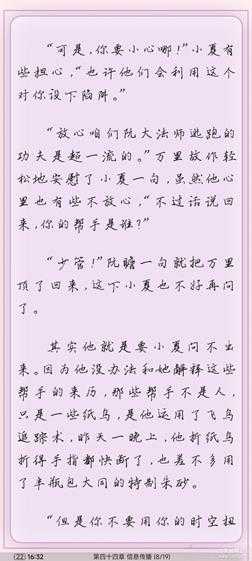 “可是,你要小心哪!”小夏有
些担心,“也许他们会利用这个
对你设下陷阱。”
“放心咱们阮大法师逃跑的
功夫是超一流的。”万里故作轻
松地安慰了小夏一句,虽然他心
里也有些不放心,“不过话说回
来,你的帮手是谁?”
“少管!”阮瞻一句就把万里
顶了回来,这下小夏也不好再问
了。
其实他就是要小夏问不出
来。因为他没办法和她解释这些
帮手的来历,那些帮手不是人,
只是一些纸鸟,是他运用了飞鸟
追踪术,昨天一晚上,他折纸鸟
折得手指都快断了,也差不多用
了半瓶包大同的特制朱砂。
“但是你不要用你的时空扭
(22) 16:32
第四十四章 信息传播 (8/19)